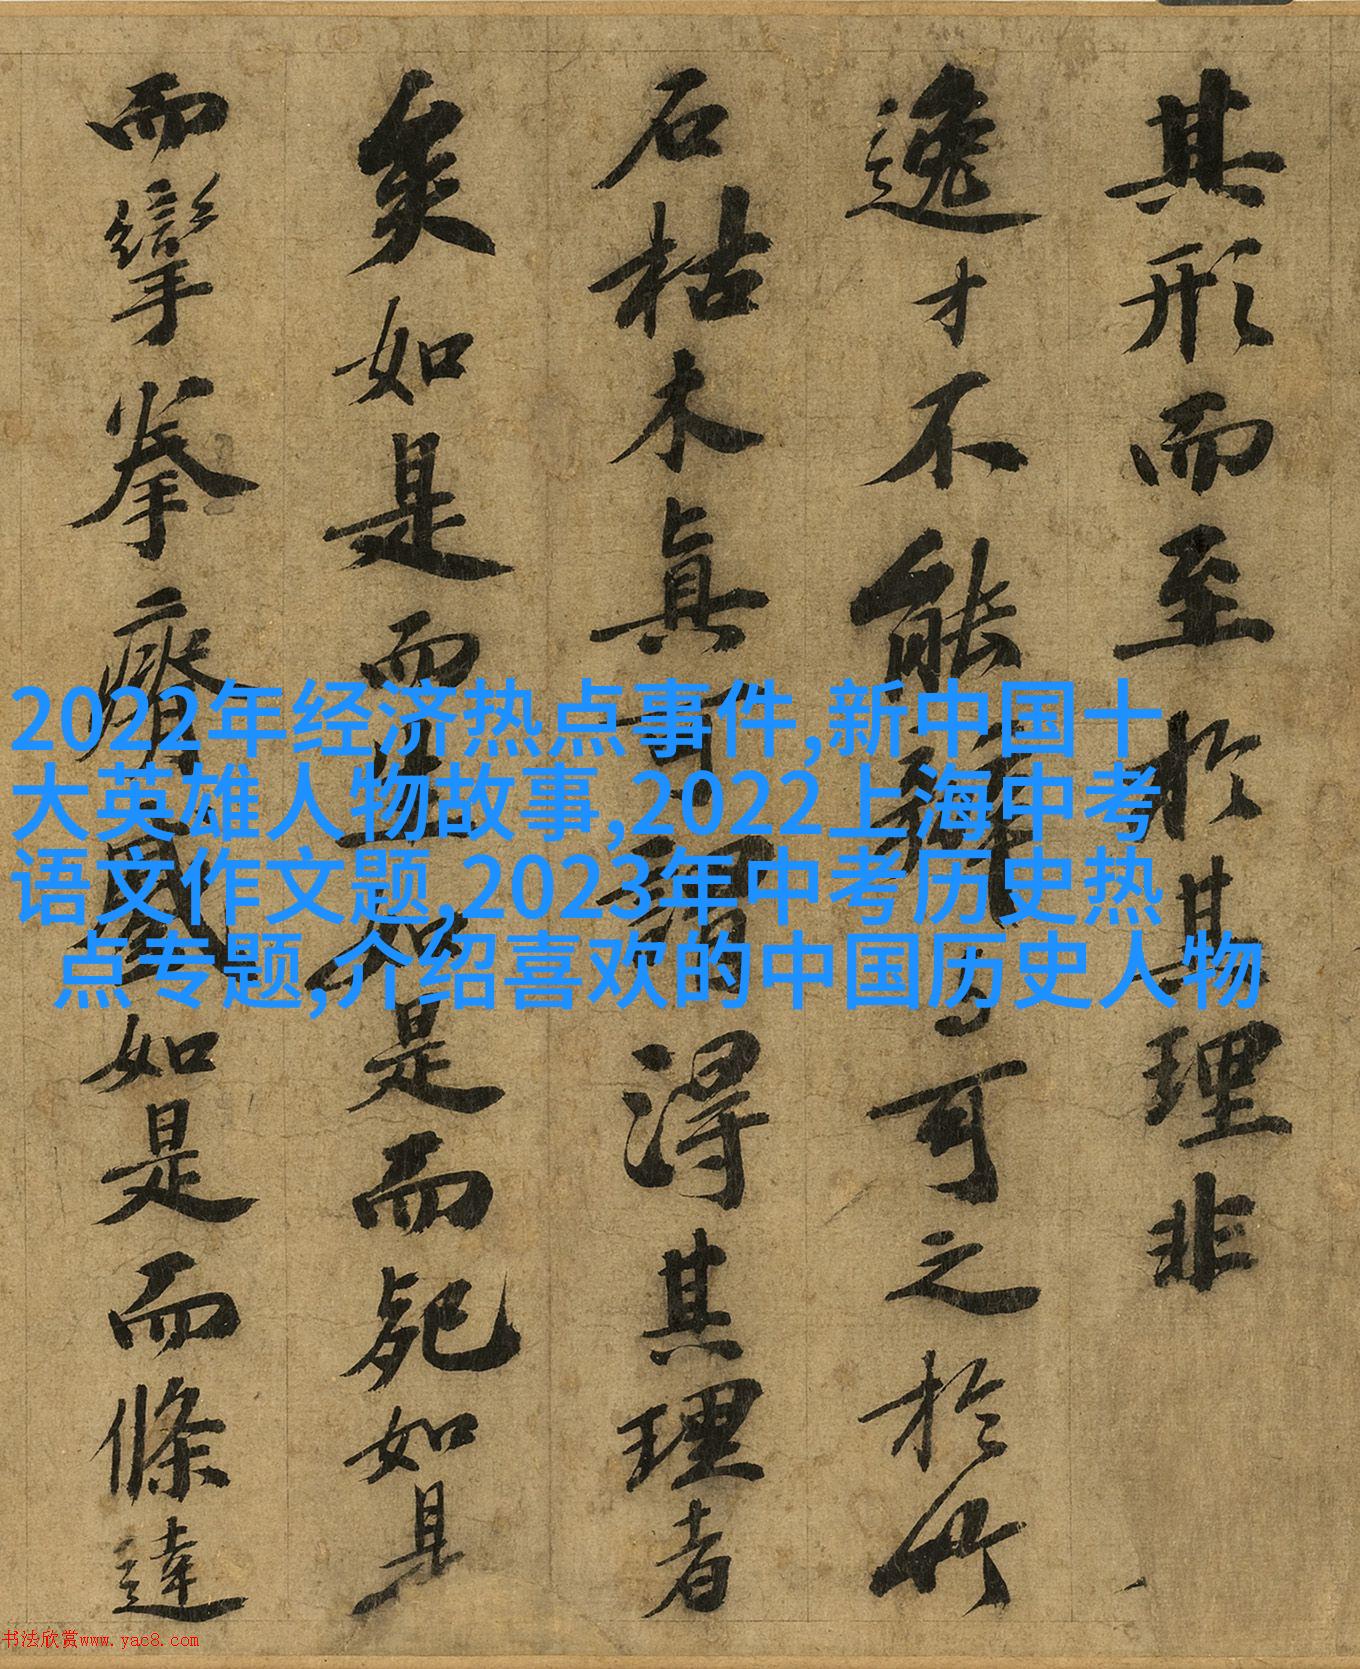 其形而至於其理非
逸才不能辨与可之於竹
石枯木真可謂得其理者
矣如是而生如是而死如是
而攣拳瘠蹙如是而條達
2022年经济热点事件,新中国十
大英雄人物故事,2022上海中考
语文作文题,2023年中考历史热
点专题,介绍喜欢的中国历史人物
书法欣赏www.yac8.com